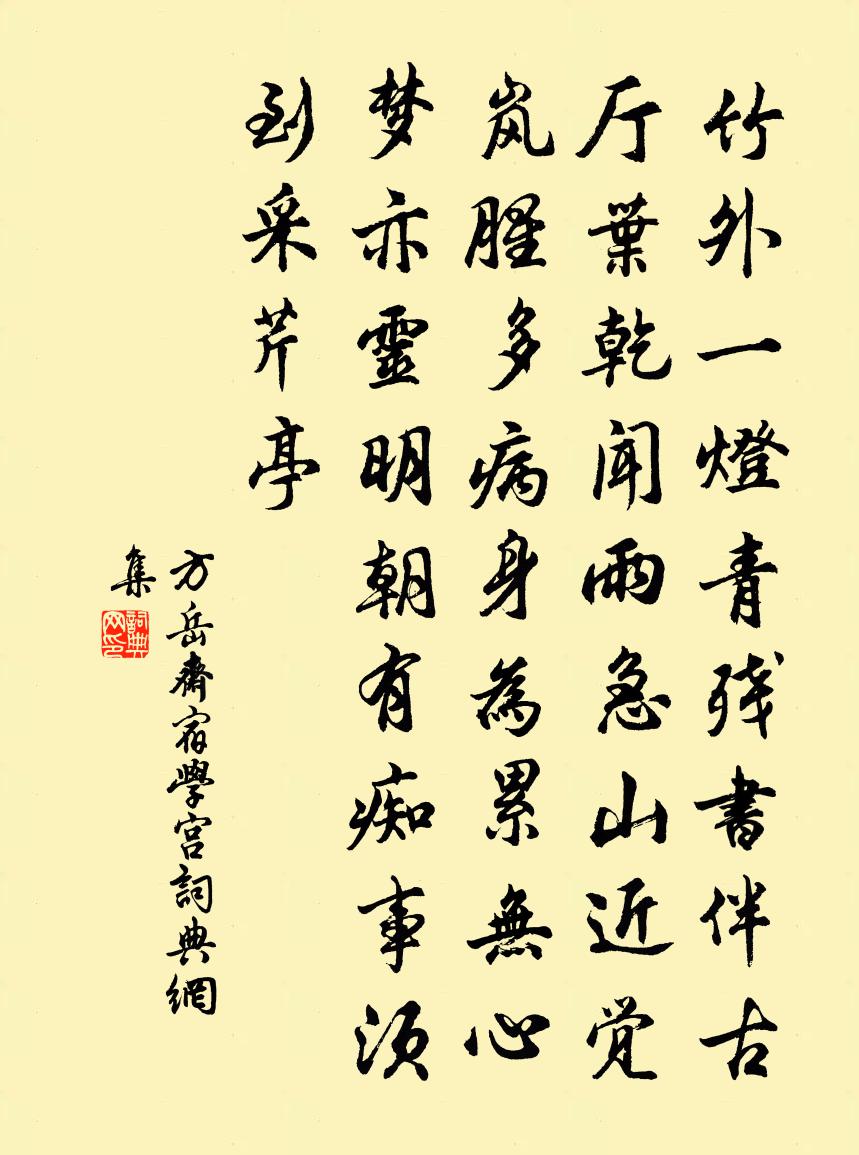 竹外一燈青残書伴古
厅葉乾闻雨急山近觉
岚腥多病身為累無心
梦亦靈明朝有痴事须
到采芹亭
方岳斋宿學宫詞典網
集
詞典
网印